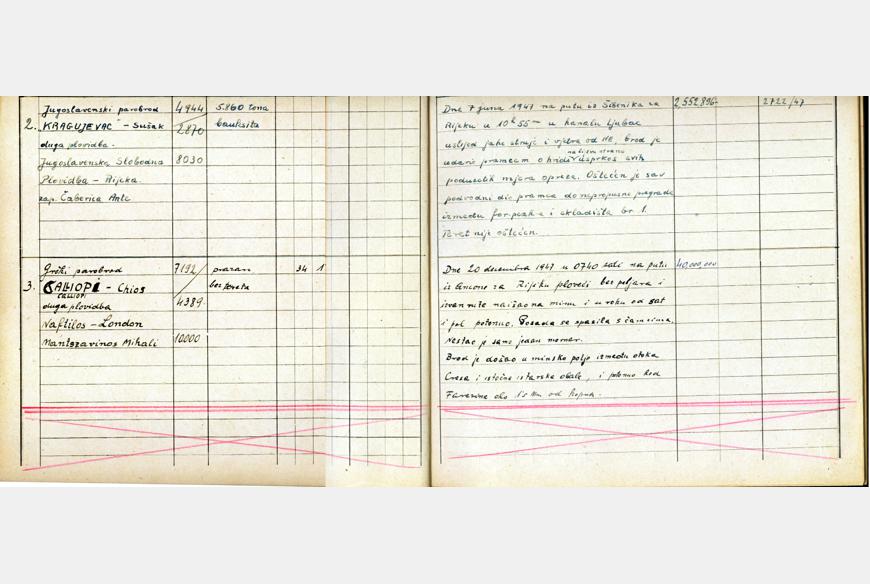 Jugoslavenski parobrod 4944 5.860 tona
2. KRAGUJEVAC - Sušak 2870 bauksita
duga plovidba -
Jugoslavenska Slobodna 8030
Plovidba - Rijeka
zap. Čaberica Ante
Grčki parobrod 7192 prazan 34 1
3. KALLIOPI - Chios bez tereta
CALLIOPI
duga plovidba 4389
Naftilos - London
Mantzavinos Mihali 10.000
Dne 7 juna 1947 na putu iz Šibenika za 2,552.896- 2722/47
Rijeku u 10h 55m u kanalu Ljubac
usljed jake struje i vjetra od NE, brod je
na lijevu stranu
udario pramcem o hridi usprkos svih
poduzetih mjera opreza. Oštećen je sav
podvodni dio pramca do nepropusne pregrade
između forpeaka i skladišta br. 1.
Teret nije oštećen.
Dne 20 decembra 1947 u 0740 sati na putu 40,000.000
iz Ancone za Rijeku ploveći bez peljara i
izvan rute naišao na minu i u roku od sat
i pol potonuo. Posada se spasila s čamcima.
Nestao je samo jedan mornar.
Brod je došao u minsko polje između otoka
Cresa i istočne istarske obale, i potonuo kod
Farasine oko 1.5 Mn od kopna.